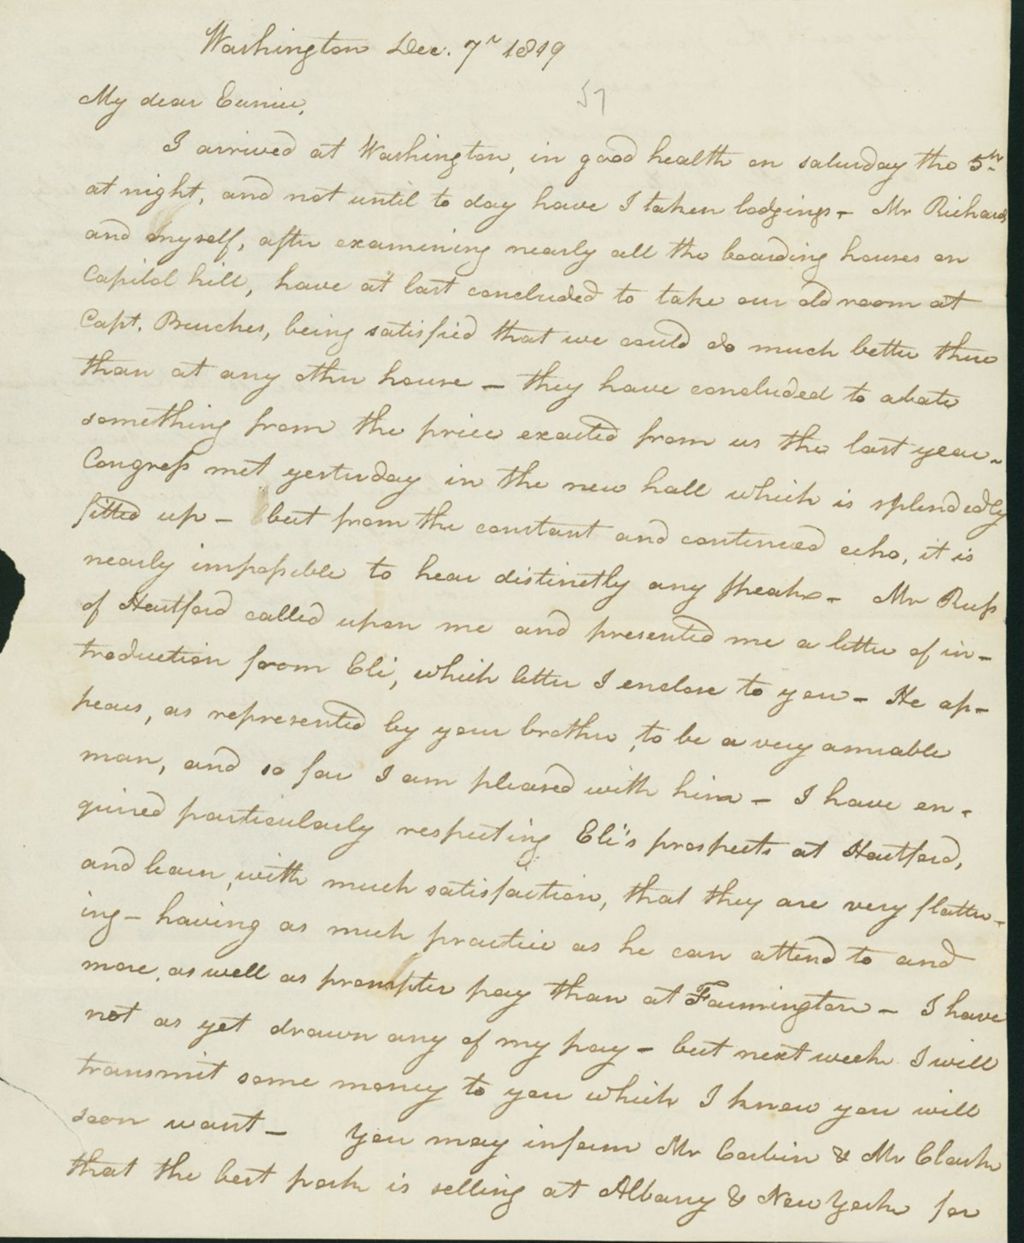 Washington Dec. 7th 1819
57
My dear Eunice,
I arrived at Washington, in good health on saturday the 5th
at night, and not until to day have I taken lodgings - Mr Richards
and myself, after examining nearly all the boarding houses on
Capitol hill, have at last concluded to take our old room at
Capt. Benches, being satisfied that we could do much better there
than at any other house - they have concluded to abate
something from the price exacted from us the last year -
Congress met yesterday in the new hall which is splendedly
fitted up - but from the constant and continued echo, it is
nearly impossible to hear distinctly any speaker - Mr Russ
of Hartford called upon me and presented me a letter of in-
troduction from Eli, which letter I enclose to you - He ap-
pears, as represented by your brother, to be a very amiable
man, and so far I am pleased with him - I have en-
quired particularly respecting Eli's prospects at Hartford,
and learn, with much satisfaction, that they are very flatter-
ing - having as much practice as he can attend to and
more, as well as prompter pay than at Farmington - I have
not as yet drawn any of my pay - but next week I will
transmit some money to you which I know you will
soon want - You may inform Mr Corbin & Mr Clark
that the best pork is selling at Albany & New York for